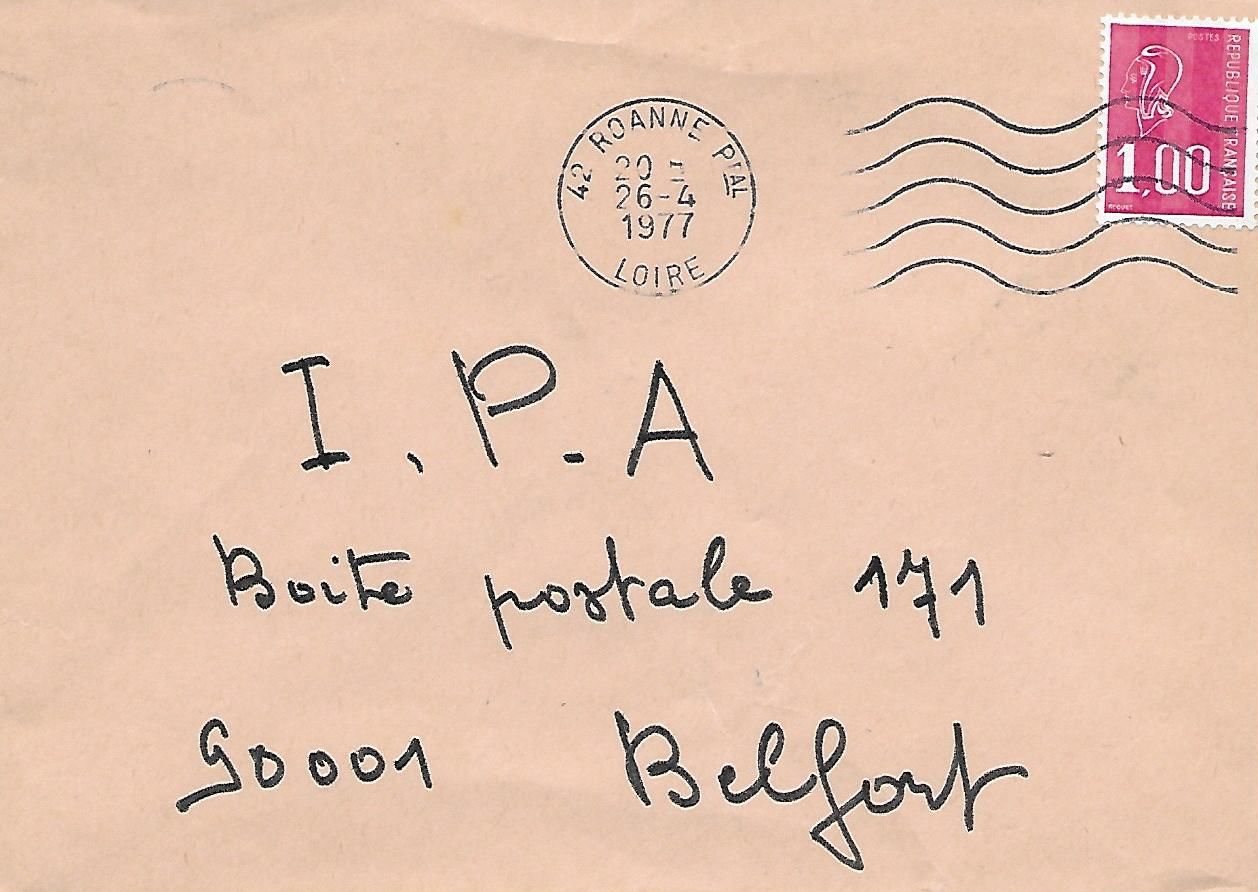 42 ROANNE PPAL
20 H
26-4
1977
LOIRE
POSTES
REPUBLIQUE FRANÇAISE
1,00
BEQUET
I. P. A
Boite postale 171
90001 Belfort